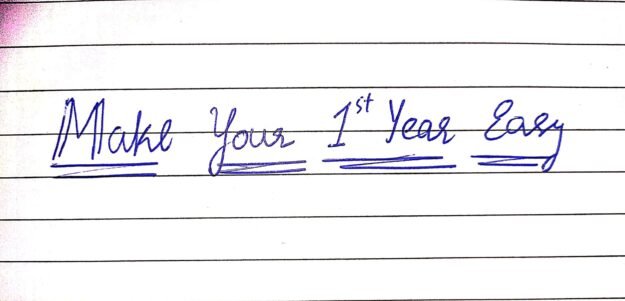 Make Your 1st Year Easy